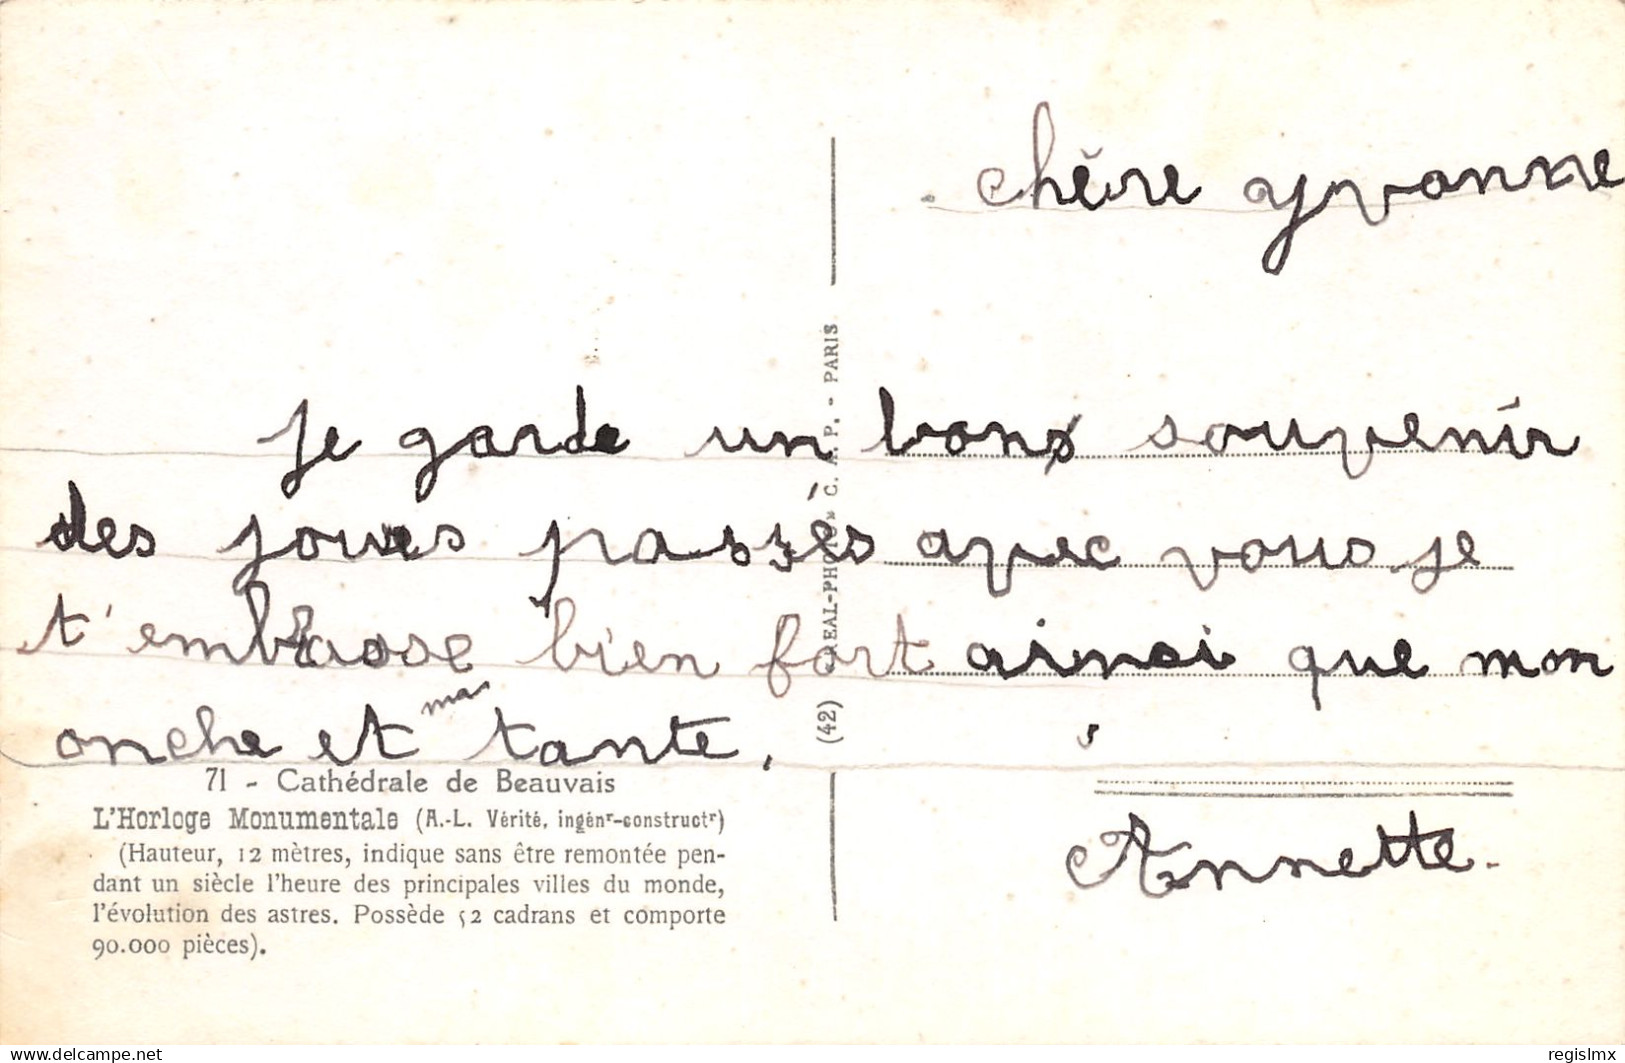 chère yvonne
je garde un bon souvenir
des joures passés avec vous. je
t'embrasse bien fort ainsi que mon
onche et ma tante,
Annette.
71 - Cathédrale de Beauvais
L'Horloge Monumentale (A.-L. Vérité, ingénr-constructr)
(Hauteur, 12 mètres, indique sans être remontée pen-
dant un siècle l'heure des principales villes du monde,
l'évolution des astres. Possède 52 cadrans et comporte
90.000 pièces).
(42) REAL-PHOTO C. A. P. - PARIS
www.delcampe.net
regislmx